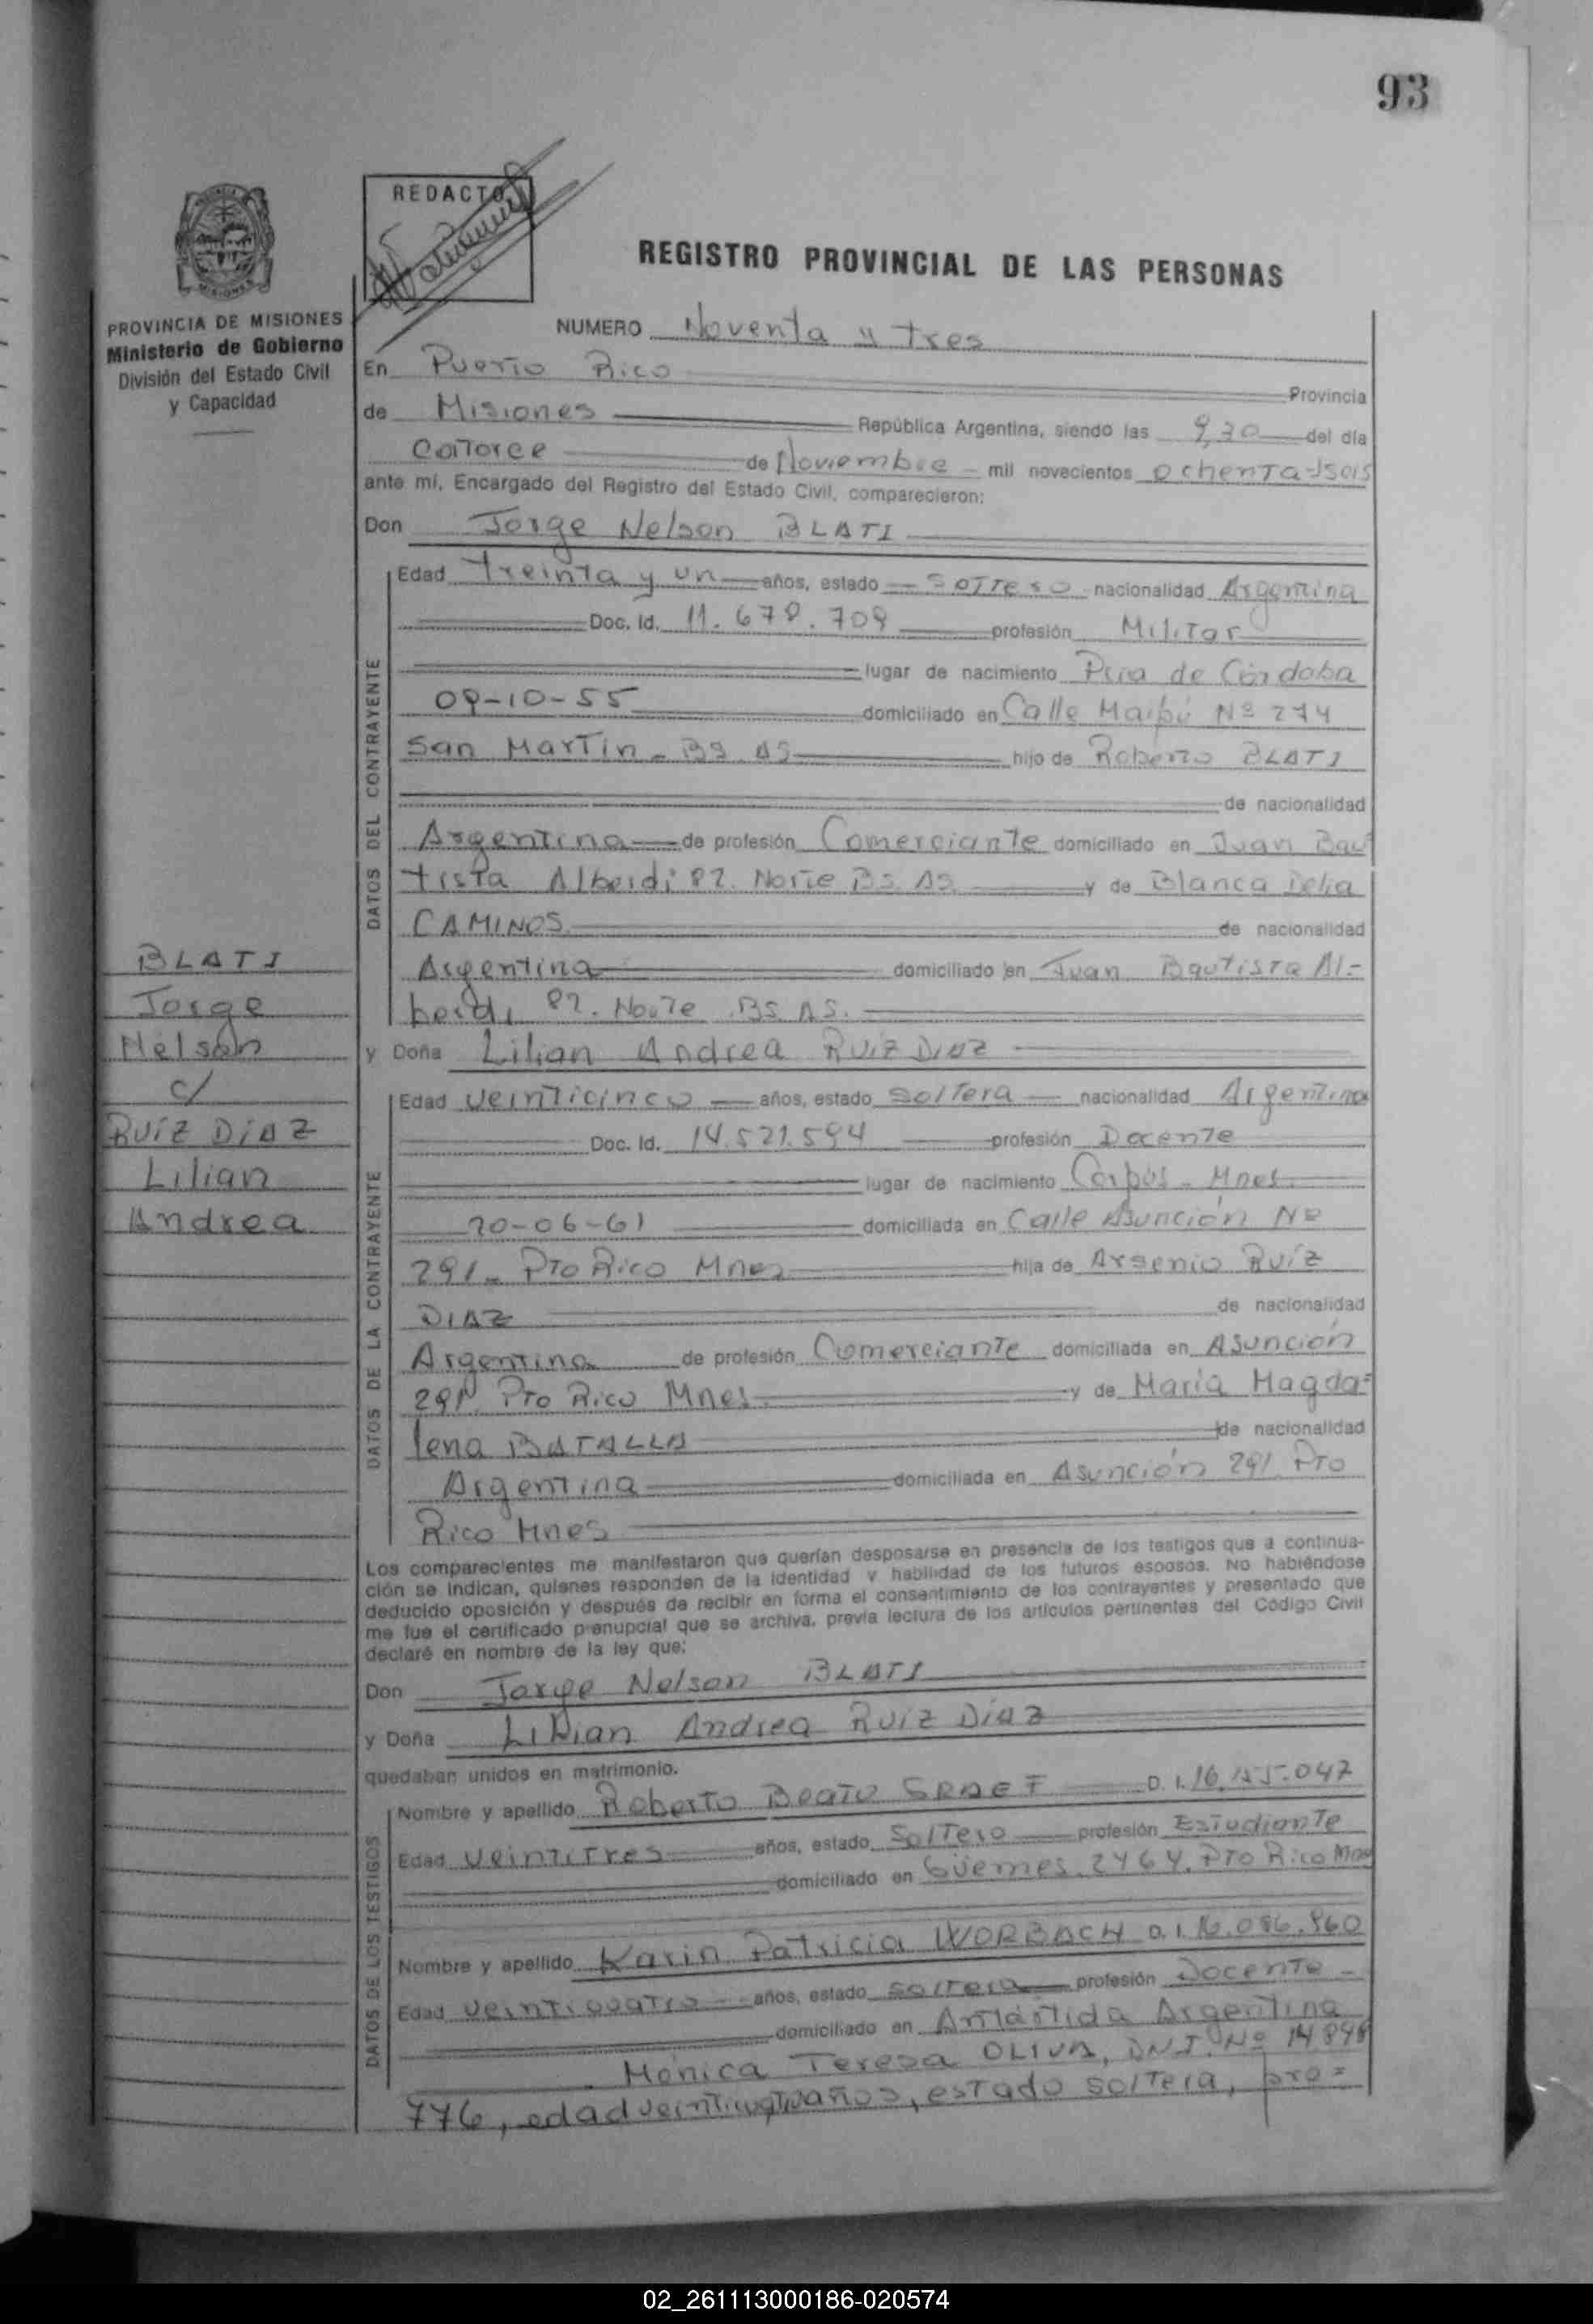 93
REDACTO
REGISTRO PROVINCIAL DE LAS PERSONAS
PROVINCIA DE MISIONES
Ministerio de Gobierno
División del Estado Civil
y Capacidad
NUMERO Noventa y tres
En Puerto Rico Provincia
de Misiones República Argentina, siendo las 9,30 del día
Catorce de Noviembre mil novecientos ochenta y seis
ante mí, Encargado del Registro del Estado Civil, comparecieron:
Don Jorge Nelson BLATI
DATOS DEL CONTRAYENTE
Edad treinta y un años, estado soltero nacionalidad Argentina
Doc. Id. 11.678.709 profesión Militar
lugar de nacimiento Pcia de Córdoba
09-10-55 domiciliado en Calle Maipú Nº 274
San Martín - BS. AS hijo de Roberto BLATI
de nacionalidad
Argentina de profesión Comerciante domiciliado en Juan Bau
tista Alberdi 82. Norte BS. AS. y de Blanca Delia
CAMINOS de nacionalidad
Argentina domiciliado en Juan Bautista Al-
berdi 82. Norte BS. AS.
y Doña Lilian Andrea RUIZ DIAZ
BLATI
Jorge
Nelson
c/
RUIZ DIAZ
Lilian
Andrea
DATOS DE LA CONTRAYENTE
Edad veinticinco años, estado soltera nacionalidad Argentina
Doc. Id. 14.521.594 profesión Docente
lugar de nacimiento Corpus - Mnes.
20-06-61 domiciliada en Calle Asunción Nº
291 - Pto Rico Mnes hija de Arsenio Ruíz
DIAZ de nacionalidad
Argentina de profesión Comerciante domiciliada en Asunción
291 Pto Rico Mnes. y de María Magda=
lena BATALLA de nacionalidad
Argentina domiciliada en Asunción 291 Pto
Rico Mnes
Los comparecientes me manifestaron que querían desposarse en presencia de los testigos que a continua-
ción se indican, quienes responden de la identidad y habilidad de los futuros esposos. No habiéndose
deducido oposición y después de recibir en forma el consentimiento de los contrayentes y presentado que
me fue el certificado prenupcial que se archiva, previa lectura de los artículos pertinentes del Código Civil
declaré en nombre de la ley que:
Don Jorge Nelson BLATI
y Doña Lilian Andrea RUIZ DIAZ
quedaban unidos en matrimonio.
DATOS DE LOS TESTIGOS
Nombre y apellido Roberto Beato D. I. 16.155.047
Edad veintitres años, estado Soltero profesión Estudiante
domiciliado en Güemes 2464. Pto Rico Mnes
Nombre y apellido Karin Patricia WORBACH D. I. 16.086.860
Edad veinticuatro años, estado soltera profesión Docente -
domiciliado en Antártida Argentina
Mónica Teresa OLIVA, DNI. Nº 14.898
776, edad veinticuatro años, estado soltera, pro=
02_261113000186-020574